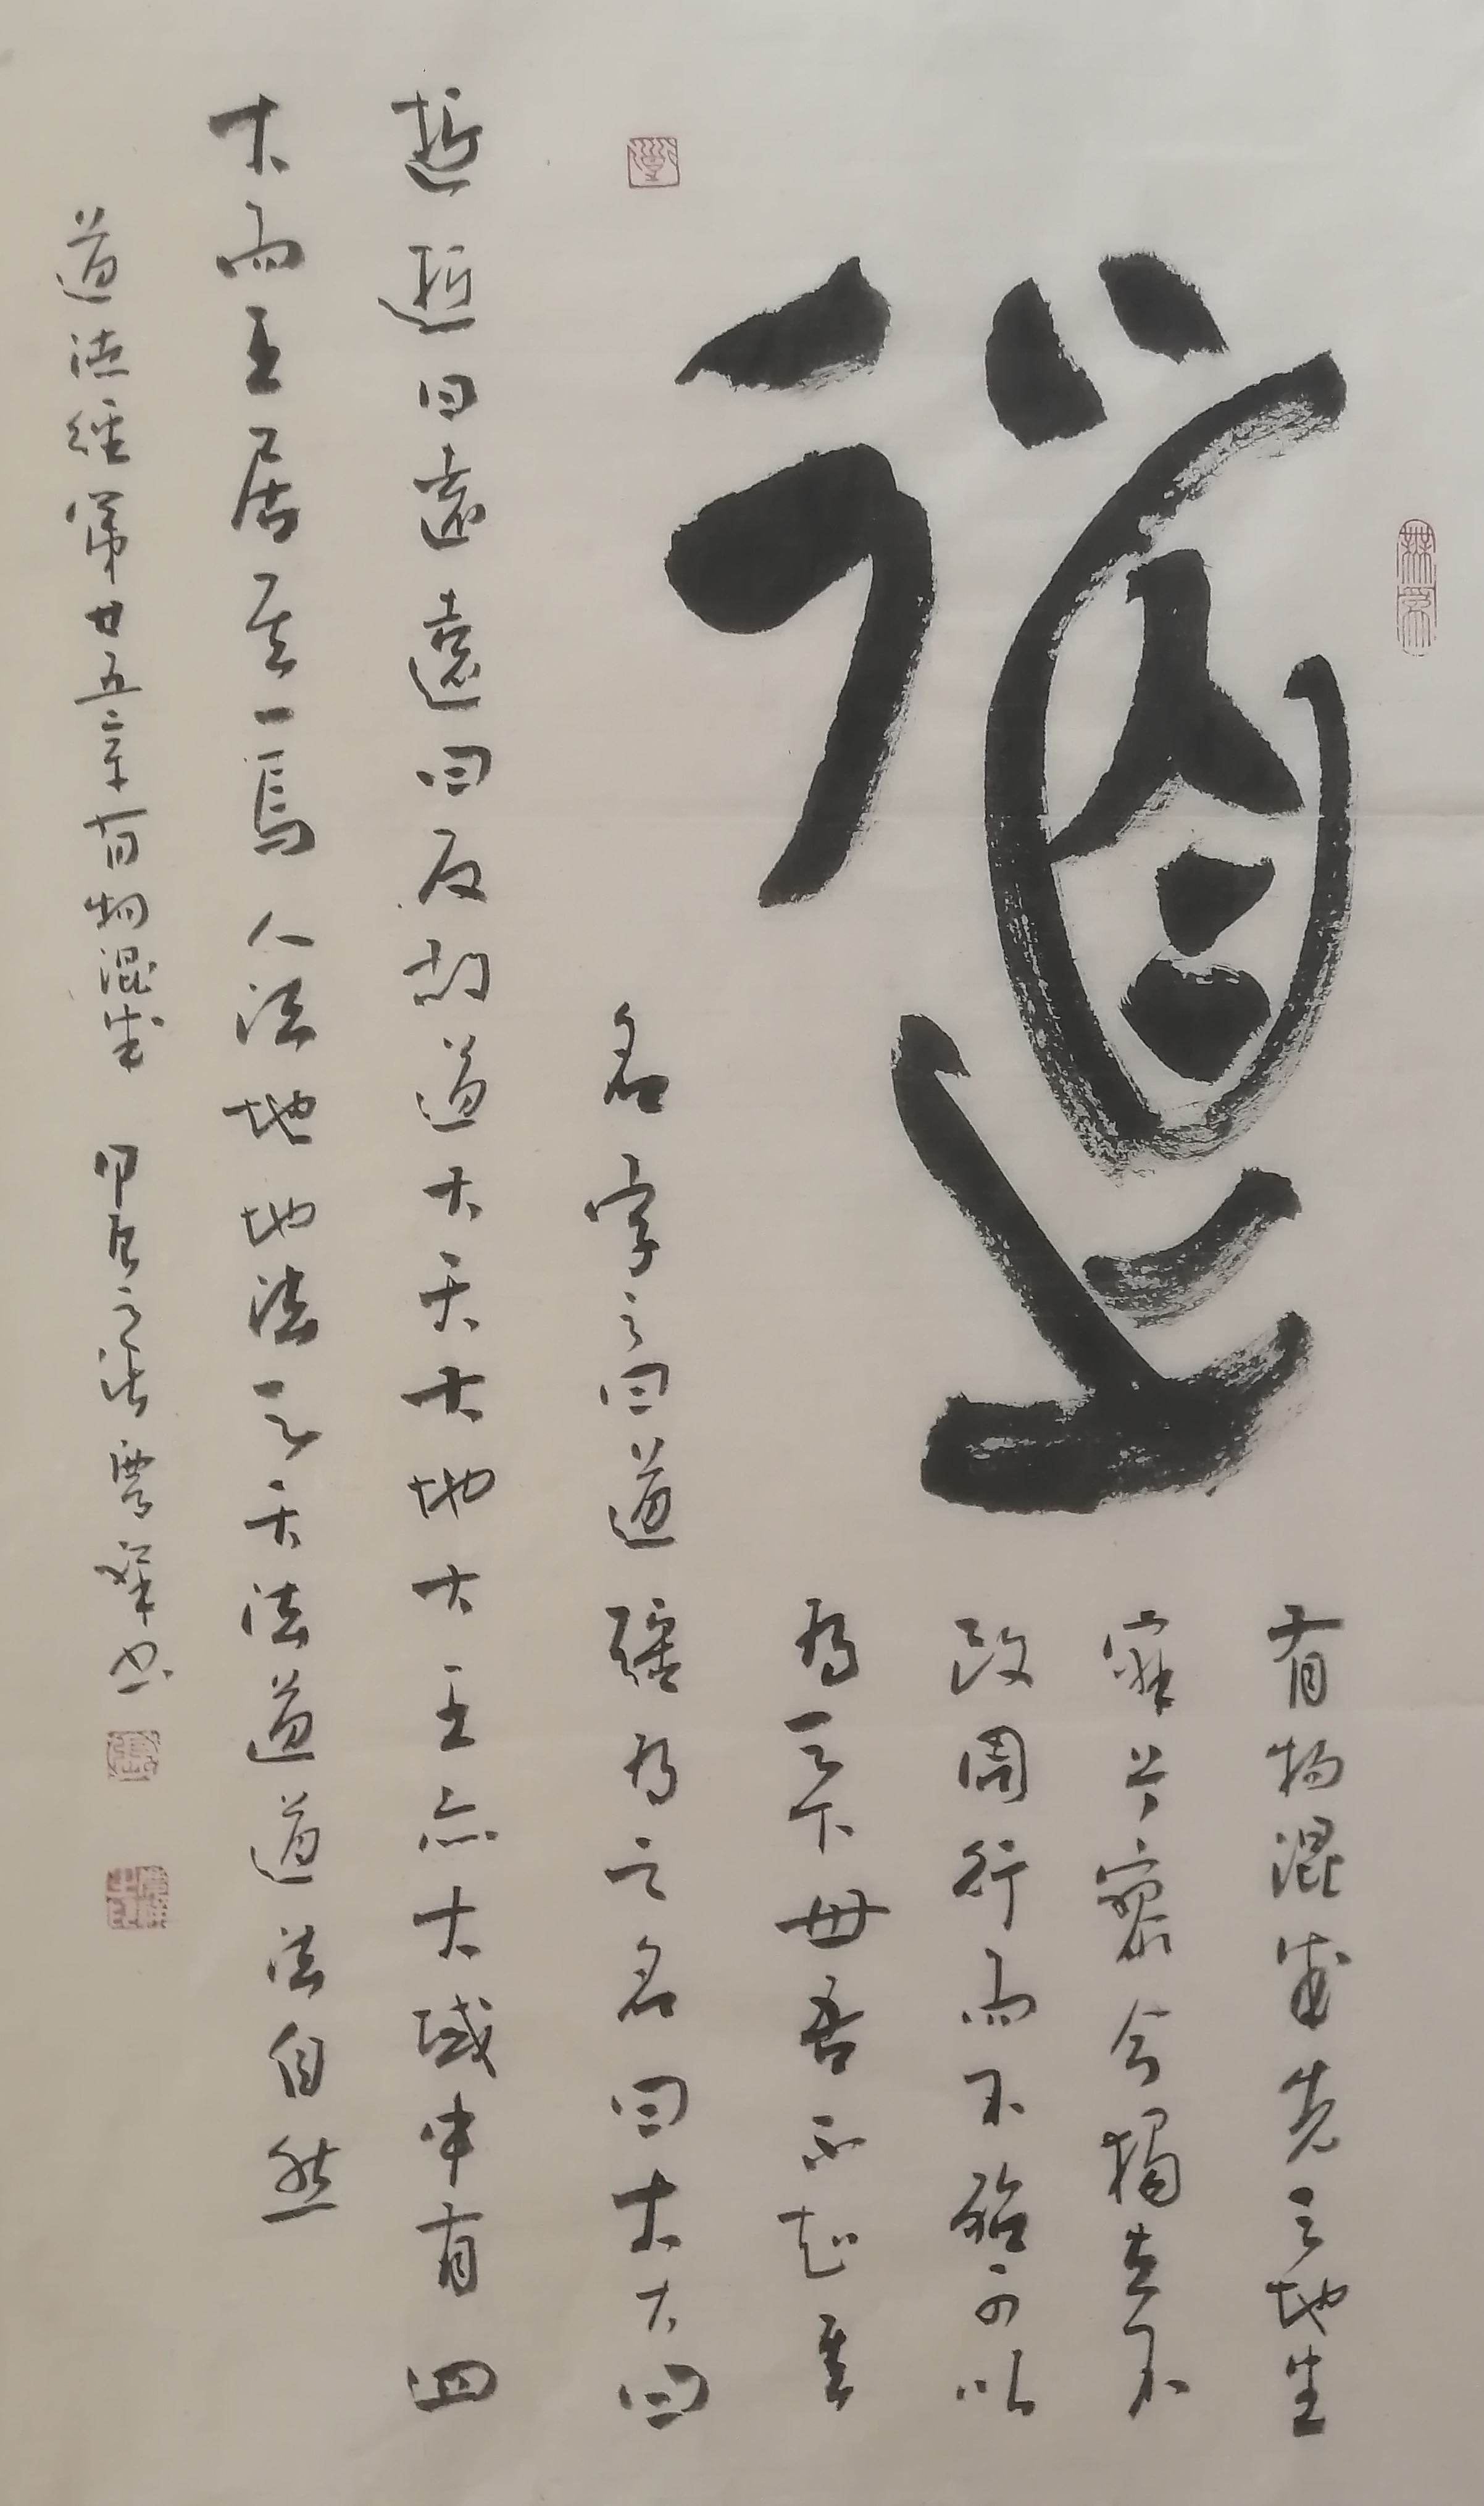 道
有物混成先天地生
寂兮寥兮獨立不
改周行而不殆可以
為天下母吾不知其
名字之曰道強為之名曰大大曰
逝逝曰遠遠曰反故道大天大地大王亦大域中有四
大而王居其一焉人法地地法天天法道道法自然
道德經第廿五章有物混成 甲辰之 書
無為